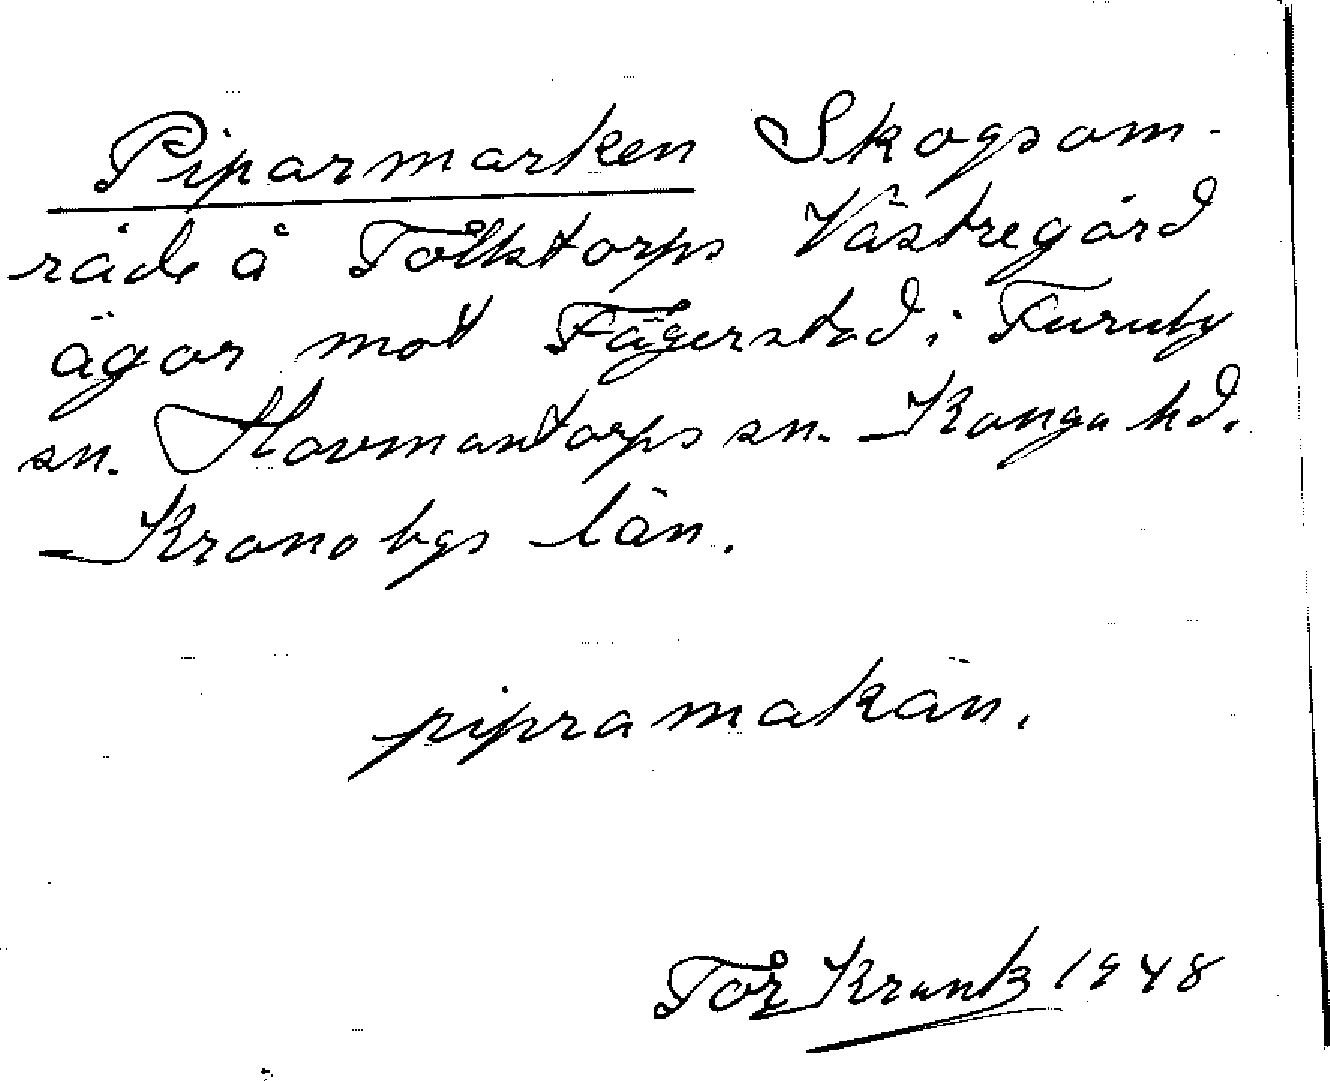 Piparmarken Skogsom-
råde å Tolktorps Västregård
ägor mot Fägerstad i Furuby
sn. Hovmantorps sn. Konga hd.
Kronobgs län.
pipramakän.
Tor Krantz 1948